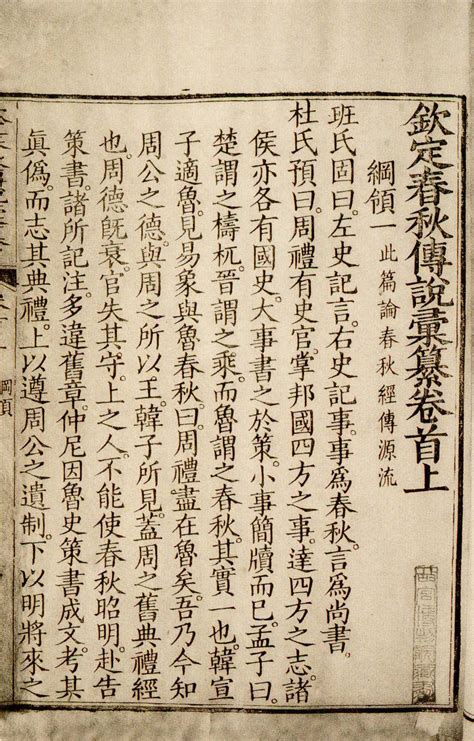 欽定春秋傳說彙纂卷首上
綱領一此篇論春秋經傳源流
班氏固曰左史記言。右史記事。事爲春秋。言爲尚書。
杜氏預曰周禮有史官。掌邦國四方之事。達四方之志。諸
侯亦各有國史。大事書之於策。小事簡牘而已。孟子曰。
楚謂之檮杌。晉謂之乘。而魯謂之春秋。其實一也。韓宣
子適魯。見易象與魯春秋。曰周禮盡在魯矣。吾乃今知
周公之德。與周之所以王。韓子所見。蓋周之舊典禮經
也。周德旣衰。官失其守。上之人不能使春秋昭明。赴告
策書。諸所記注。多違舊章。仲尼因魯史策書成文。考其
眞僞。而志其典禮。上以遵周公之遺制。下以明將來之
綱領